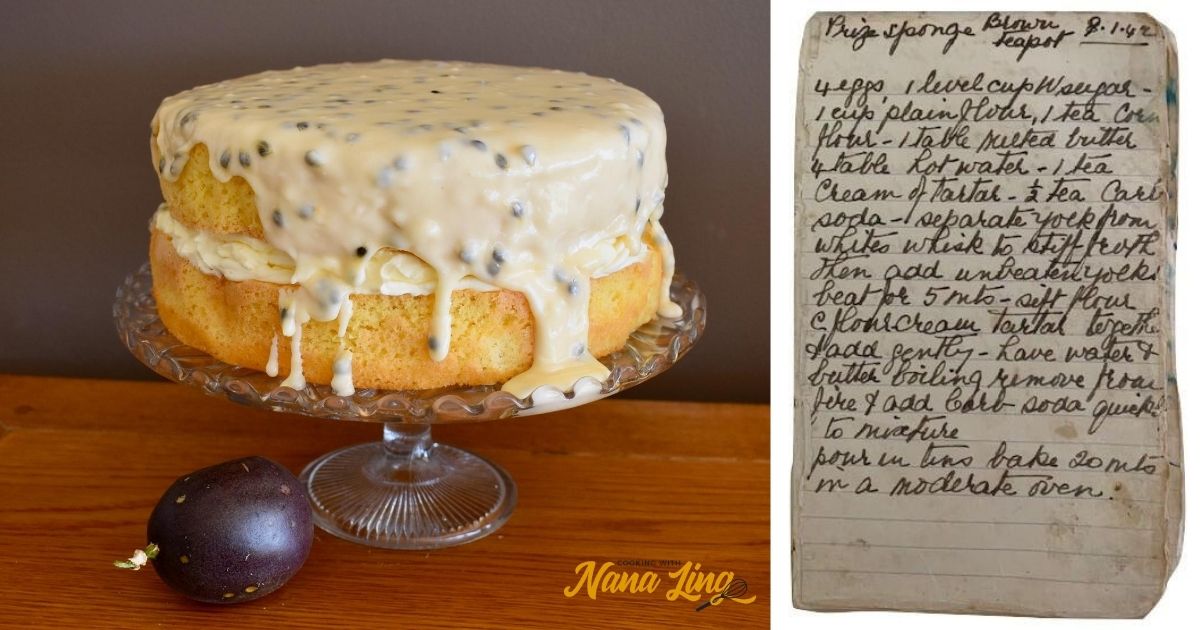 COOKING WITH
Nana Ling
Prize sponge Brown
teapot 8.1.42
4 eggs, 1 level cup W sugar -
1 cup plain flour, 1 tea Corn
flour - 1 table melted butter
4 table hot water - 1 tea
Cream of tartar - ½ tea Carb
soda - separate yolk from
whites whisk to stiff froth
then add unbeaten yolks
beat for 5 mts - sift flour
C. flour cream tartar togethe
& add gently - have water &
butter boiling remove from
fire & add Carb soda quickl
to mixture
pour in tins bake 20 mts
in a moderate oven.